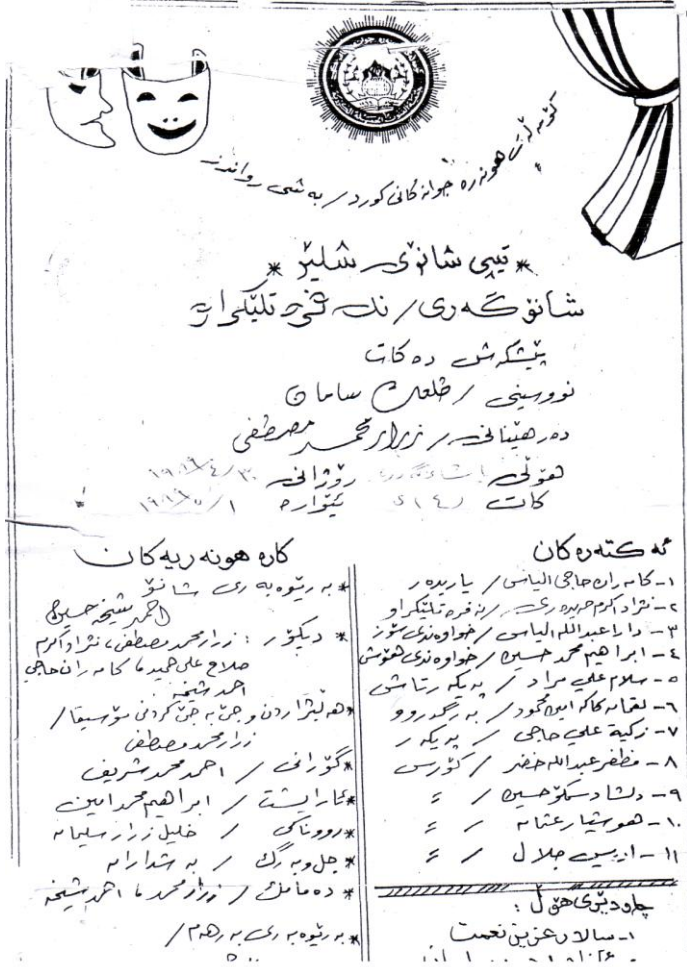 کۆمەڵەی هونەرە جوانەکانی کورد/ بەشی رواندز
* تیپی شانۆی شلێر *
شانۆگەری/
پێشکەش دەکات
نووسینی / طلعت سامان
دەرهێنانی/ زرار محمد مصطفی
هۆڵی رۆژانی ١٩٨٦/٤/٣٠
کات (٤)ی ئێوارە ١٩٨٦/٥/١
ئەکتەرەکان
١- کامەران حاجی الیاس/ یاریدەر
٢- نژاد اکرم
٣- دارا عبدالله الیاس/ خواوەندی سۆز
٤- ابراهیم محمد حسین/ خواوەندی هۆش
٥- سلام علي مراد / پەیکەرتاش
٦- لقمان کاکە امین محمود/ بەرگدروو
٧- زکیة علي حاجي / پەیکەر
٨- مظفر عبدالله خضر / کۆرس
٩- دلشاد سمکۆ حسین / =
١٠- هوشیار عثمان / =
١١- ادریس جلال / =
چاودێری هۆڵ :
١- سالار عزیز نعمت
کارە هونەریەکان
* بەرێوەبەری شانۆ
احمد شیخە حسین
* دیکۆر : زرار محمد مصطفی، نژاد اکرم
صلاح علی حمید ما کامەران حاجی
احمد شیخە
* هەڵبژاردن و جێ بە جێ کردنی مۆسیقا/
زرار محمد مصطفی
* گۆرانی / احمد محمد شریف
* ئارایشت / ابراهیم محمد امین
* رووناکی / خلیل زرار سلیمان
* جل و بەرگ / بەشداران
* دەمامک / زرار محمد ما احمد شیخە
* بەرێوەبەری بەرهەم/